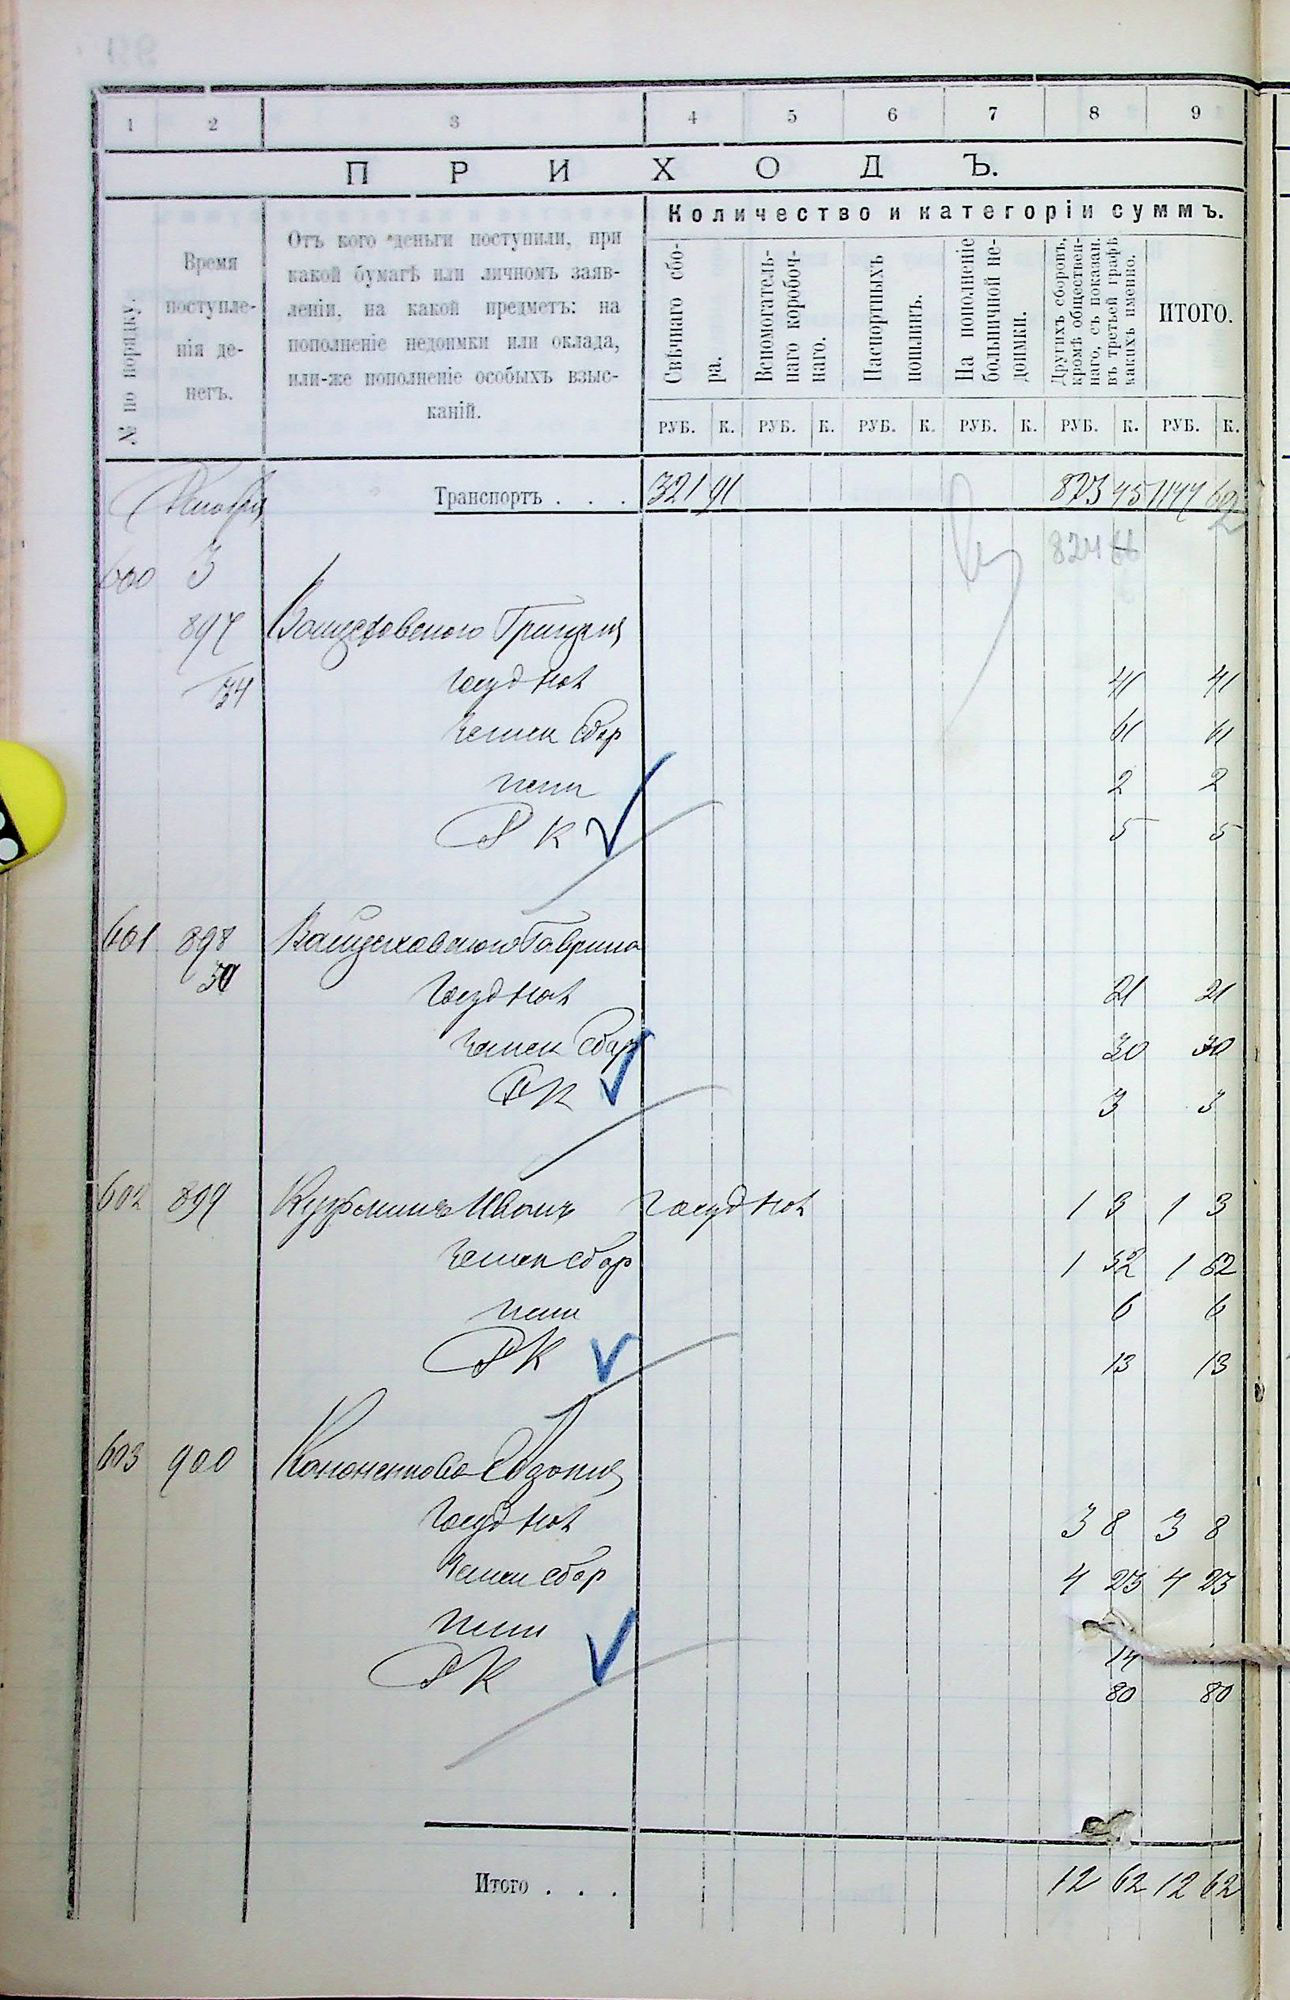 1 2 3 4 5 6 7 8 9
ПРИХОДЪ.
№ по порядку.
Время поступле-
нія де-
негъ.
Отъ кого деньги поступили, при
какой бумагѣ или личномъ заяв-
леніи, на какой предметъ: на
пополненіе недоимки или оклада,
или-же пополненіе особыхъ взыс-
каній.
Количество и категоріи суммъ.
Свѣчнаго сбо-
ра.
Вспомогатель-
наго коробоч-
наго.
Паспортныхъ
пошлинъ.
На пополненіе
больничной не-
доимки.
Другихъ сборовъ,
кромѣ обществен-
наго, съ показан.
въ третьей графѣ
какихъ именно.
ИТОГО.
РУБ. К. РУБ. К. РУБ. К. РУБ. К. РУБ. К. РУБ. К.
Транспортъ . . . 321 91 873 45
824
600 3
897
34
госуд нал 41 41
земск сбор 61 61
пени 2 2
Р К 5 5
601 898
госуд нал 21 21
земск сбор 30 30
Р К 3 3
602 899 Кузьминъ Иванъ госуд нал 1 3 1 3
земск сбор 1 52 1 52
пени 6 6
Р К 13 13
603 900
госуд нал 3 8 3 8
земск сбор 4 23 4 23
пени 14
Р К 80 80
Итого . . . 12 62 12 62